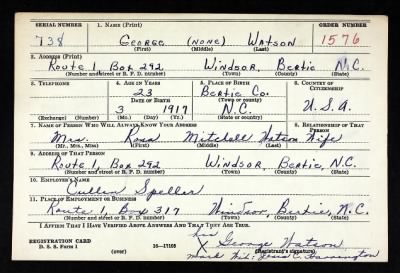 SERIAL NUMBER 1. NAME (Print) ORDER NUMBER
738 George (none) Watson 1576
(First) (Middle) (Last)
2. ADDRESS (Print)
Route 1, Box 292 Windsor, Bertie N.C.
(Number and street or R. F. D. number) (Town) (County) (State)
3. TELEPHONE 4. AGE IN YEARS 5. PLACE OF BIRTH 6. COUNTRY OF CITIZENSHIP
23 Bertie Co.
DATE OF BIRTH (Town or county)
3 1917 N.C. U.S.A
(Exchange) (Number) (Mo.) (Day) (Yr.) (State or country)
7. NAME OF PERSON WHO WILL ALWAYS KNOW YOUR ADDRESS 8. RELATIONSHIP OF THAT PERSON
Mrs. Rosa Mitchell Watson Wife
(Mr., Mrs., Miss) (First) (Middle) (Last)
9. ADDRESS OF THAT PERSON
Route 1, Box 292 Windsor, Bertie, N.C.
(Number and street or R. F. D. number) (Town) (County) (State)
10. EMPLOYER'S NAME
Cullen Speller
11. PLACE OF EMPLOYMENT OR BUSINESS
Route 1, Box 317 Windsor, Bertie, N.C.
(Number and street or R. F. D. number) (Town) (County) (State)
I AFFIRM THAT I HAVE VERIFIED ABOVE ANSWERS AND THAT THEY ARE TRUE.
his
REGISTRATION CARD X George Watson
D. S. S. Form 1 (over) 16—17105 (Registrant's signature)
mark